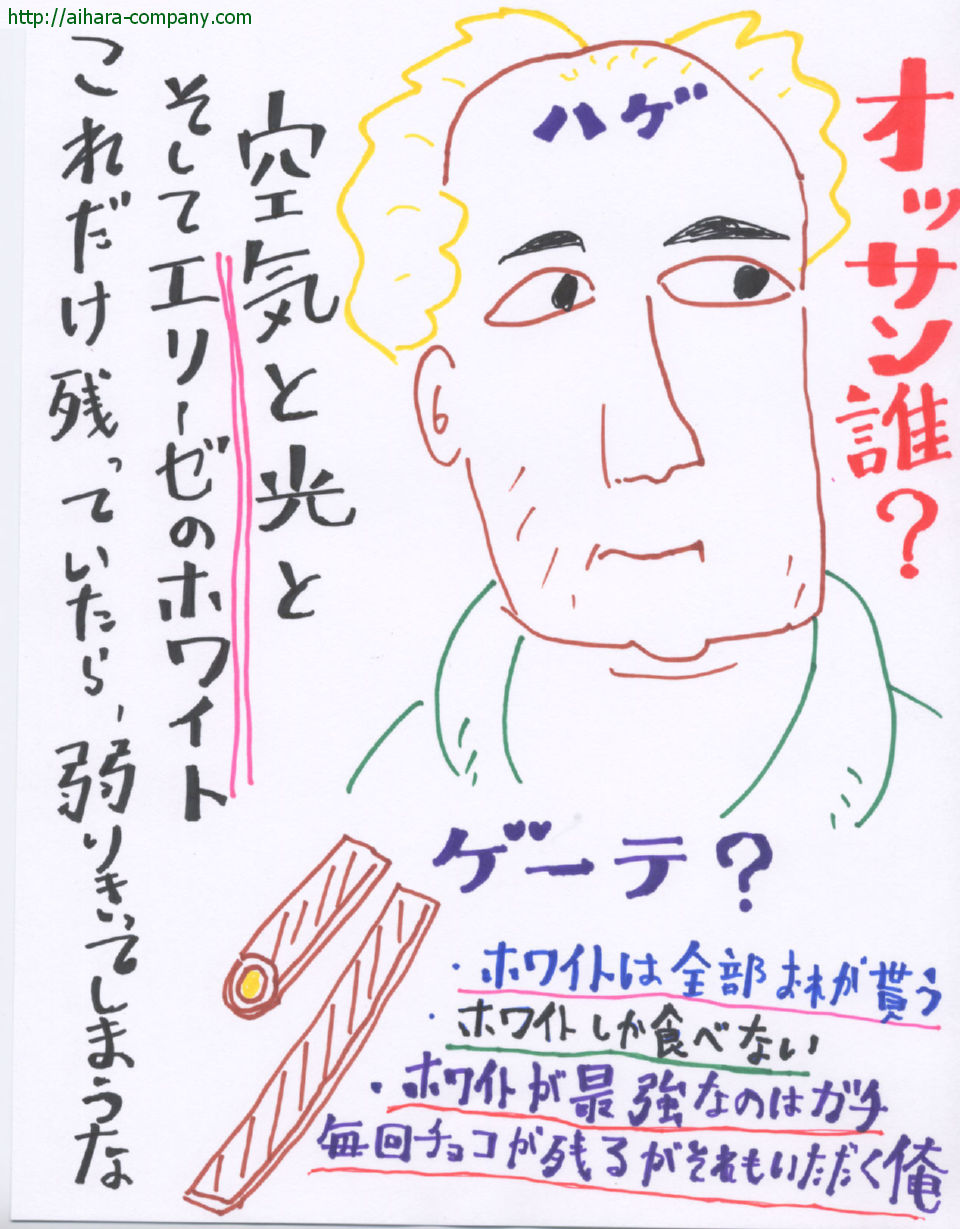 http://aihara-company.com
オッサン誰?
ハゲ
空気と光と
そしてエリーゼのホワイト
これだけ残っていたら、弱りきってしまうな
ゲーテ?
・ホワイトは全部おれが貰う
・ホワイトしか食べない
・ホワイトが最強なのはガチ
毎回チョコが残るがそれもいただく俺